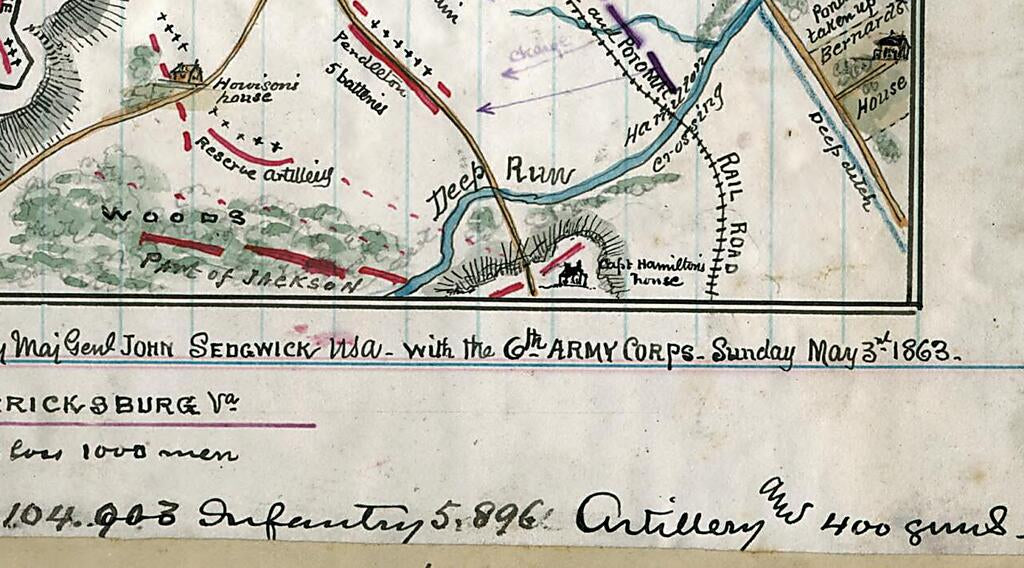 and POTOMAC
Pon
taken up
Bernards
House
charge
Pendleton
5 batteries
Howison's
house
Reserve artillery
Hamilton
Crossing
Deep ditch
RAIL ROAD
Deep Run
WOODS
PART OF JACKSON
Capt Hamilton's
house
Maj Genl JOHN SEDGWICK USA - with the 6th ARMY CORPS - Sunday May 3rd 1863.
RICKSBURG Va
loss 1000 men
104.903 Infantry 5.896 Artillery and 400 guns -